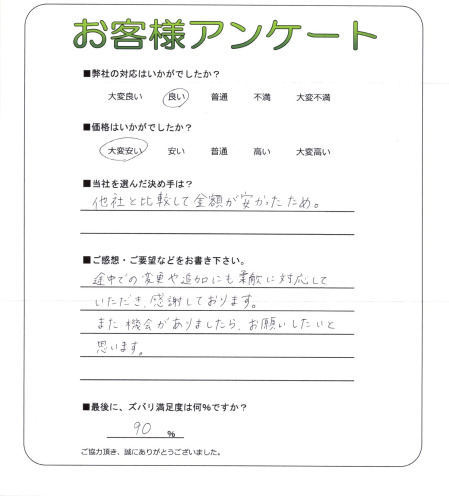 お客様アンケート
■弊社の対応はいかがでしたか？
大変良い 良い 普通 不満 大変不満
■価格はいかがでしたか？
大変安い 安い 普通 高い 大変高い
■当社を選んだ決め手は？
他社と比較して金額が安かったため。
■ご感想・ご要望などをお書き下さい。
途中での変更や追加にも柔軟に対応して
いただき、感謝しております。
また機会がありましたら、お願いしたいと
思います。
■最後に、ズバリ満足度は何％ですか？
90 ％
ご協力頂き、誠にありがとうございました。